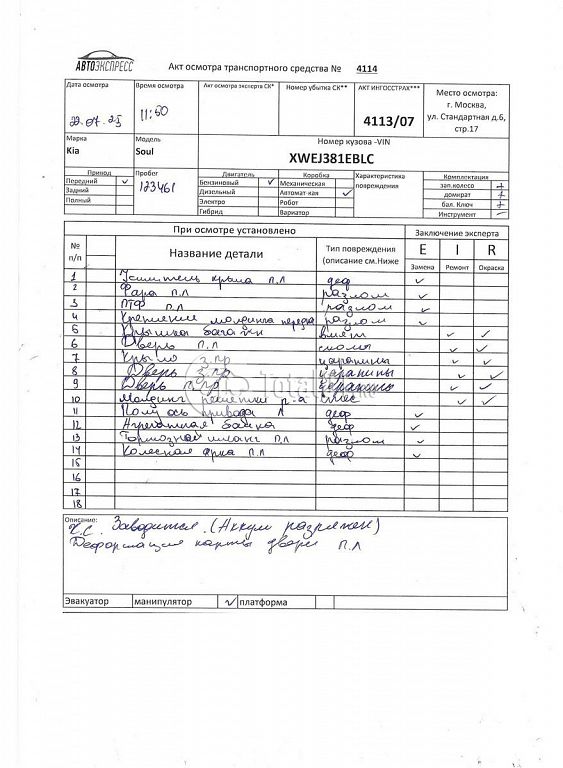 АВТОЭКСПРЕСС
Акт осмотра транспортного средства № 4114
Дата осмотра
Время осмотра
Акт осмотра эксперта СК*
Номер убытка СК**
АКТ ИНГОССТРАХ***
Место осмотра:
г. Москва,
ул. Стандартная д.6,
стр.17
11:50
4113/07
Марка
Модель
Номер кузова -VIN
Kia
Soul
XWEJ381EBLC
Привод
Пробег
Двигатель
Коробка
Характеристика
повреждения
Комплектация
Передний ✓
123461
Бензиновый ✓
Механическая
зап.колесо +
Задний
Дизельный
Автомат-кая ✓
домкрат +
Полный
Электро
Робот
бал. Ключ +
Гибрид
Вариатор
Инструмент –
При осмотре установлено
Заключение эксперта
№
п/п
Название детали
Тип повреждения
(описание см.Ниже
E I R
Замена Ремонт Окраска
1 Усилитель крыла п.л деф ✓
2 Фара п.л разлом ✓
3 ПТФ п.л разлом ✓
4 Крепление молдинга передка разлом ✓
5 Крышка багажн вмят ✓ ✓
6 Дверь п.л сколы ✓ ✓
7 Крыло з.пр царапины ✓ ✓
8 Дверь з.пр царапины ✓ ✓
9 Дверь п.пр царапины ✓ ✓
10 Молдинг решетки р-а ✓ ✓
11 Полуось привода Л деф ✓
12 Агрегатная балка деф ✓
13 Тормозной шланг п.л разлом ✓
14 Колесная арка п.л деф ✓
15
16
17
18
Описание:
Х.С. Заводится. (Аккум разряжен)
Деформация карты двери п.л
Эвакуатор
манипулятор
✓ платформа